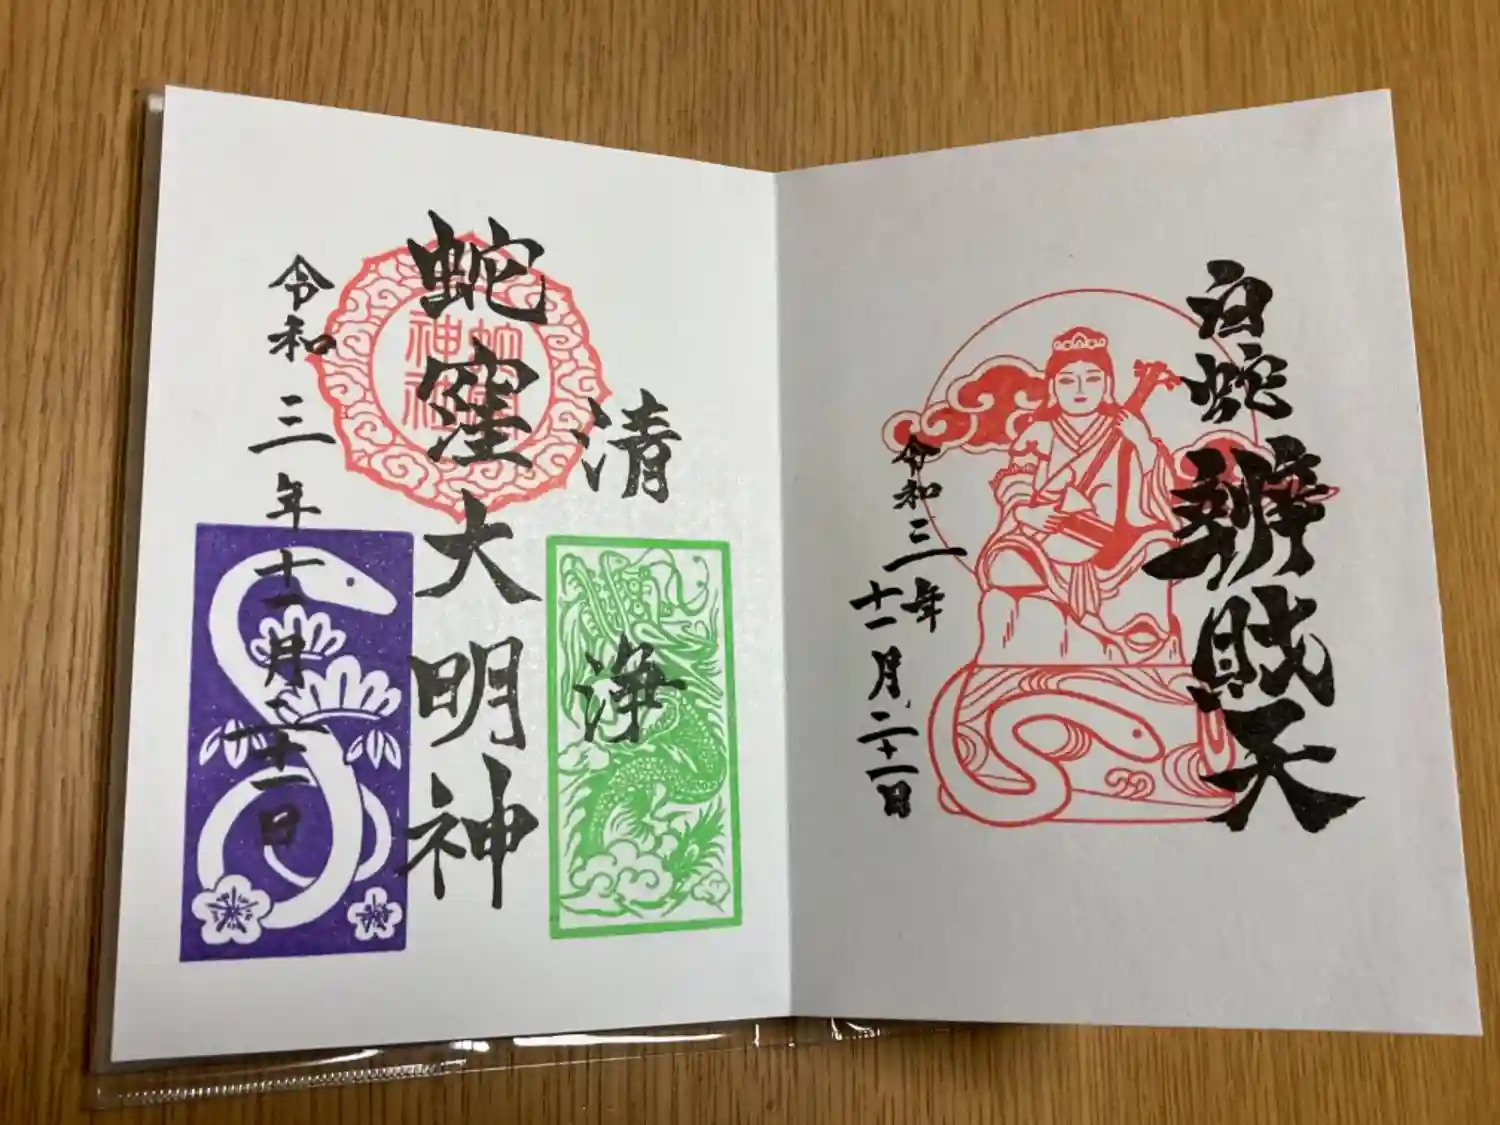 白蛇辨財天
令和三年
十一月二十一日
清浄
蛇窪大明神
蛇窪
神社
令和三年十一月二十一日